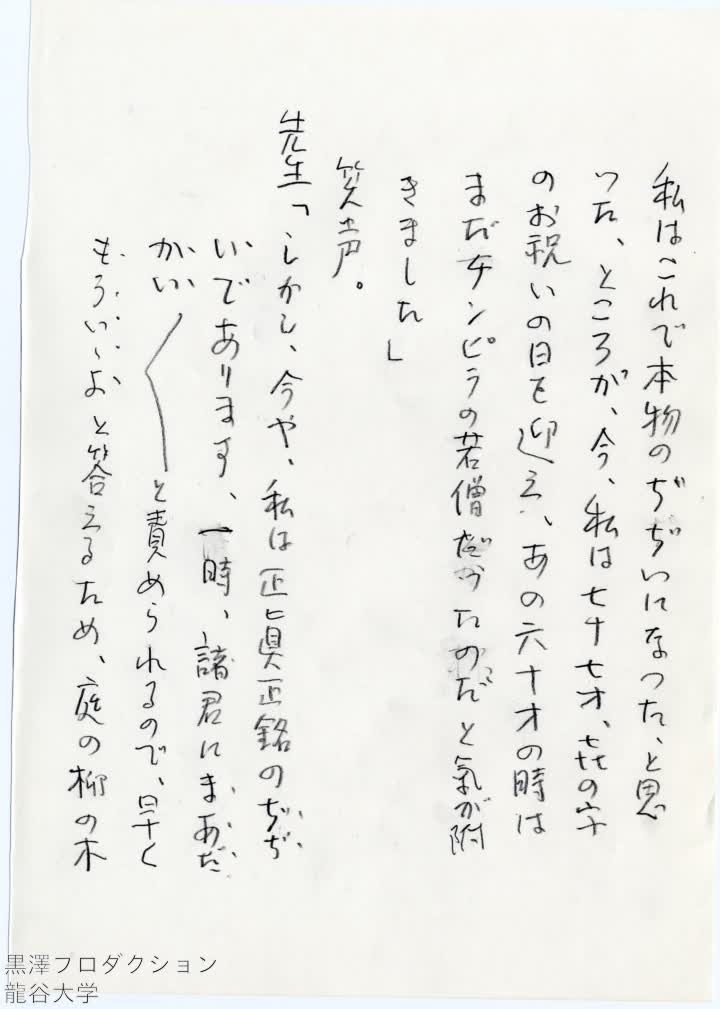 私はこれで本物のぢぢいになつた、と思
つた、ところが、今、私は七十七才、㐂の字
のお祝いの日を迎え、あの六十才の時は
まだチンピラの若僧だつたのだと氣が附
きました」
笑声。
先生「しかし、今や、私は正眞正銘のぢぢ
いであります、一時、諸君にまあだ
かい〱と責められるので、早く
もういゝよと答えるため、庭の柳の木
黒澤プロダクション
龍谷大学